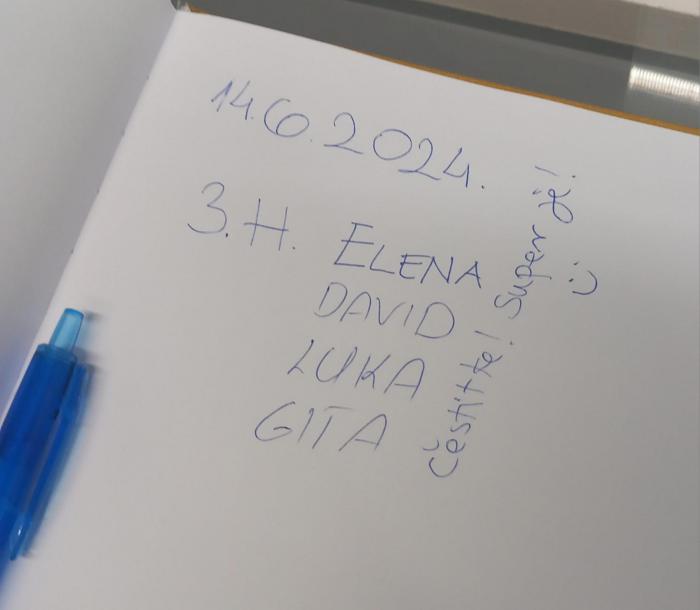 14.6.2024.
3.H. ELENA
DAVID
LUKA
GITA
Čestitke! Super je!
:)